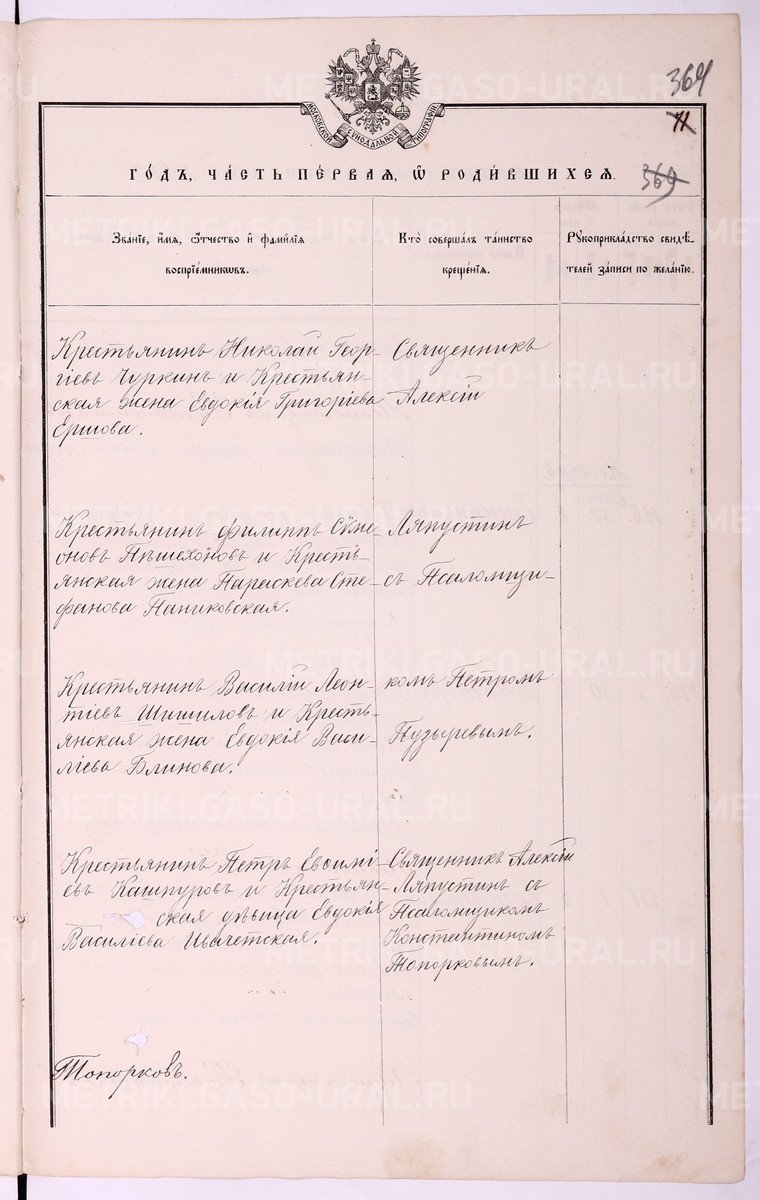 364
11
369
МОСКОВСКОЙ СУНОДАЛЬНОЙ ТИПОГРАФІИ
ГОДЪ, ЧАСТЬ ПЕРВАЯ, Ѽ РОДИВШИХСЯ.
Званїе, имя, ѿчество и фамилїя
воспрїемниковъ.
Кто совершалъ таинство
крещенїя.
Рукоприкладство свидѣ-
телей записи по желанїю.
Крестьянинъ Николай Геор-
гіевъ Чуркинъ и Крестьян-
ская жена Евдокія Григоріева
Ершова.
Священникъ
Алексій
Крестьянинъ Филиппъ Сѵме-
оновъ Пѣшехоновъ и Кресть-
янская жена Параскева Сте-
фанова Паниковская.
Ляпустинъ
съ Псаломщи-
Крестьянинъ Василій Леон-
тіевъ Шишиловъ и Кресть-
янская жена Евдокія Васи-
ліева Блинова.
комъ Петромъ
Пузыревымъ.
Крестьянинъ Петръ Евѳимі-
евъ Кашпуровъ и Крестьян-
ская дѣвица Евдокія
Василіева
Священникъ Алексій
Ляпустинъ съ
Псаломщикомъ
Константиномъ
Топорковымъ.
Топорковъ.
METRIKI.GASO-URAL.RU